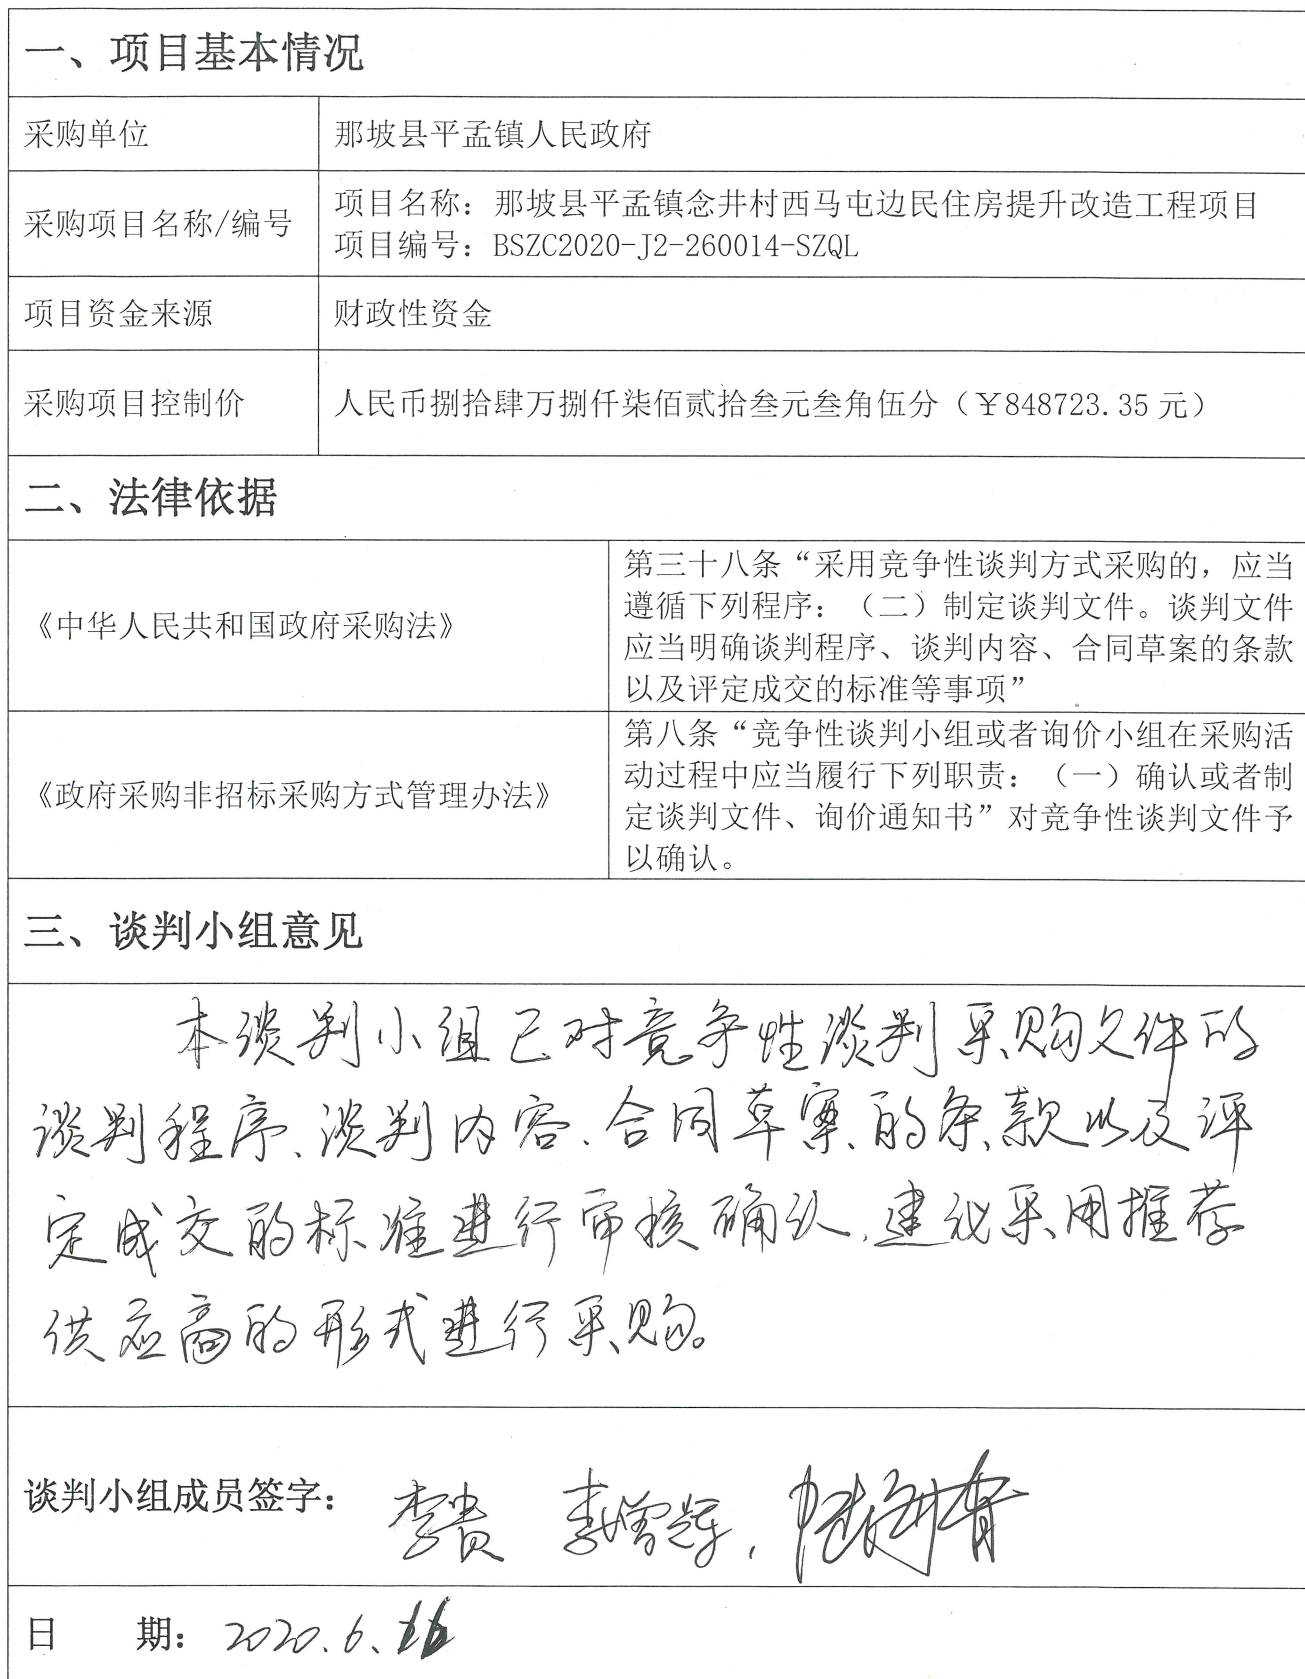 一、项目基本情况
采购单位
那坡县平孟镇人民政府
采购项目名称/编号
项目名称：那坡县平孟镇念井村西马屯边民住房提升改造工程项目
项目编号：BSZC2020-J2-260014-SZQL
项目资金来源
财政性资金
采购项目控制价
人民币捌拾肆万捌仟柒佰贰拾叁元叁角伍分（￥848723.35元）
二、法律依据
《中华人民共和国政府采购法》
第三十八条“采用竞争性谈判方式采购的，应当
遵循下列程序：（二）制定谈判文件。谈判文件
应当明确谈判程序、谈判内容、合同草案的条款
以及评定成交的标准等事项”
《政府采购非招标采购方式管理办法》
第八条“竞争性谈判小组或者询价小组在采购活
动过程中应当履行下列职责：（一）确认或者制
定谈判文件、询价通知书”对竞争性谈判文件予
以确认。
三、谈判小组意见
本谈判小组已对竞争性谈判采购文件的
谈判程序、谈判内容、合同草案的条款以及评
定成交的标准进行审核确认，建议采用推荐
供应商的形式进行采购。
谈判小组成员签字：李贵 李增辉，
日 期：2020.6.